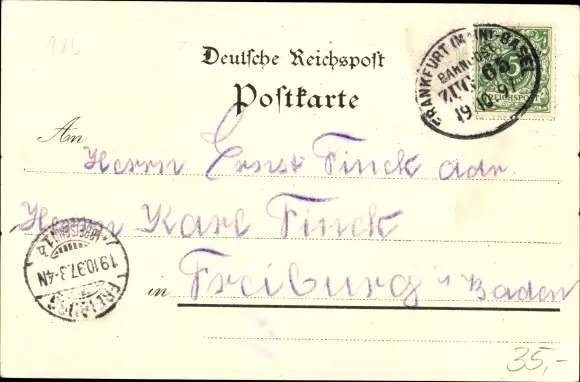 186
Deutsche Reichspost
Postkarte
FRANKFURT (MAIN)-BASEL
BAHNPOST
ZUG 65
19 10 9
5
REICHSPOST
An
Herrn Ernst Finck adr.
Herrn Karl Finck
in Freiburg i Baden
FREIBURG
19.10.97.3-4N
(BREISGAU) 1a
35,-